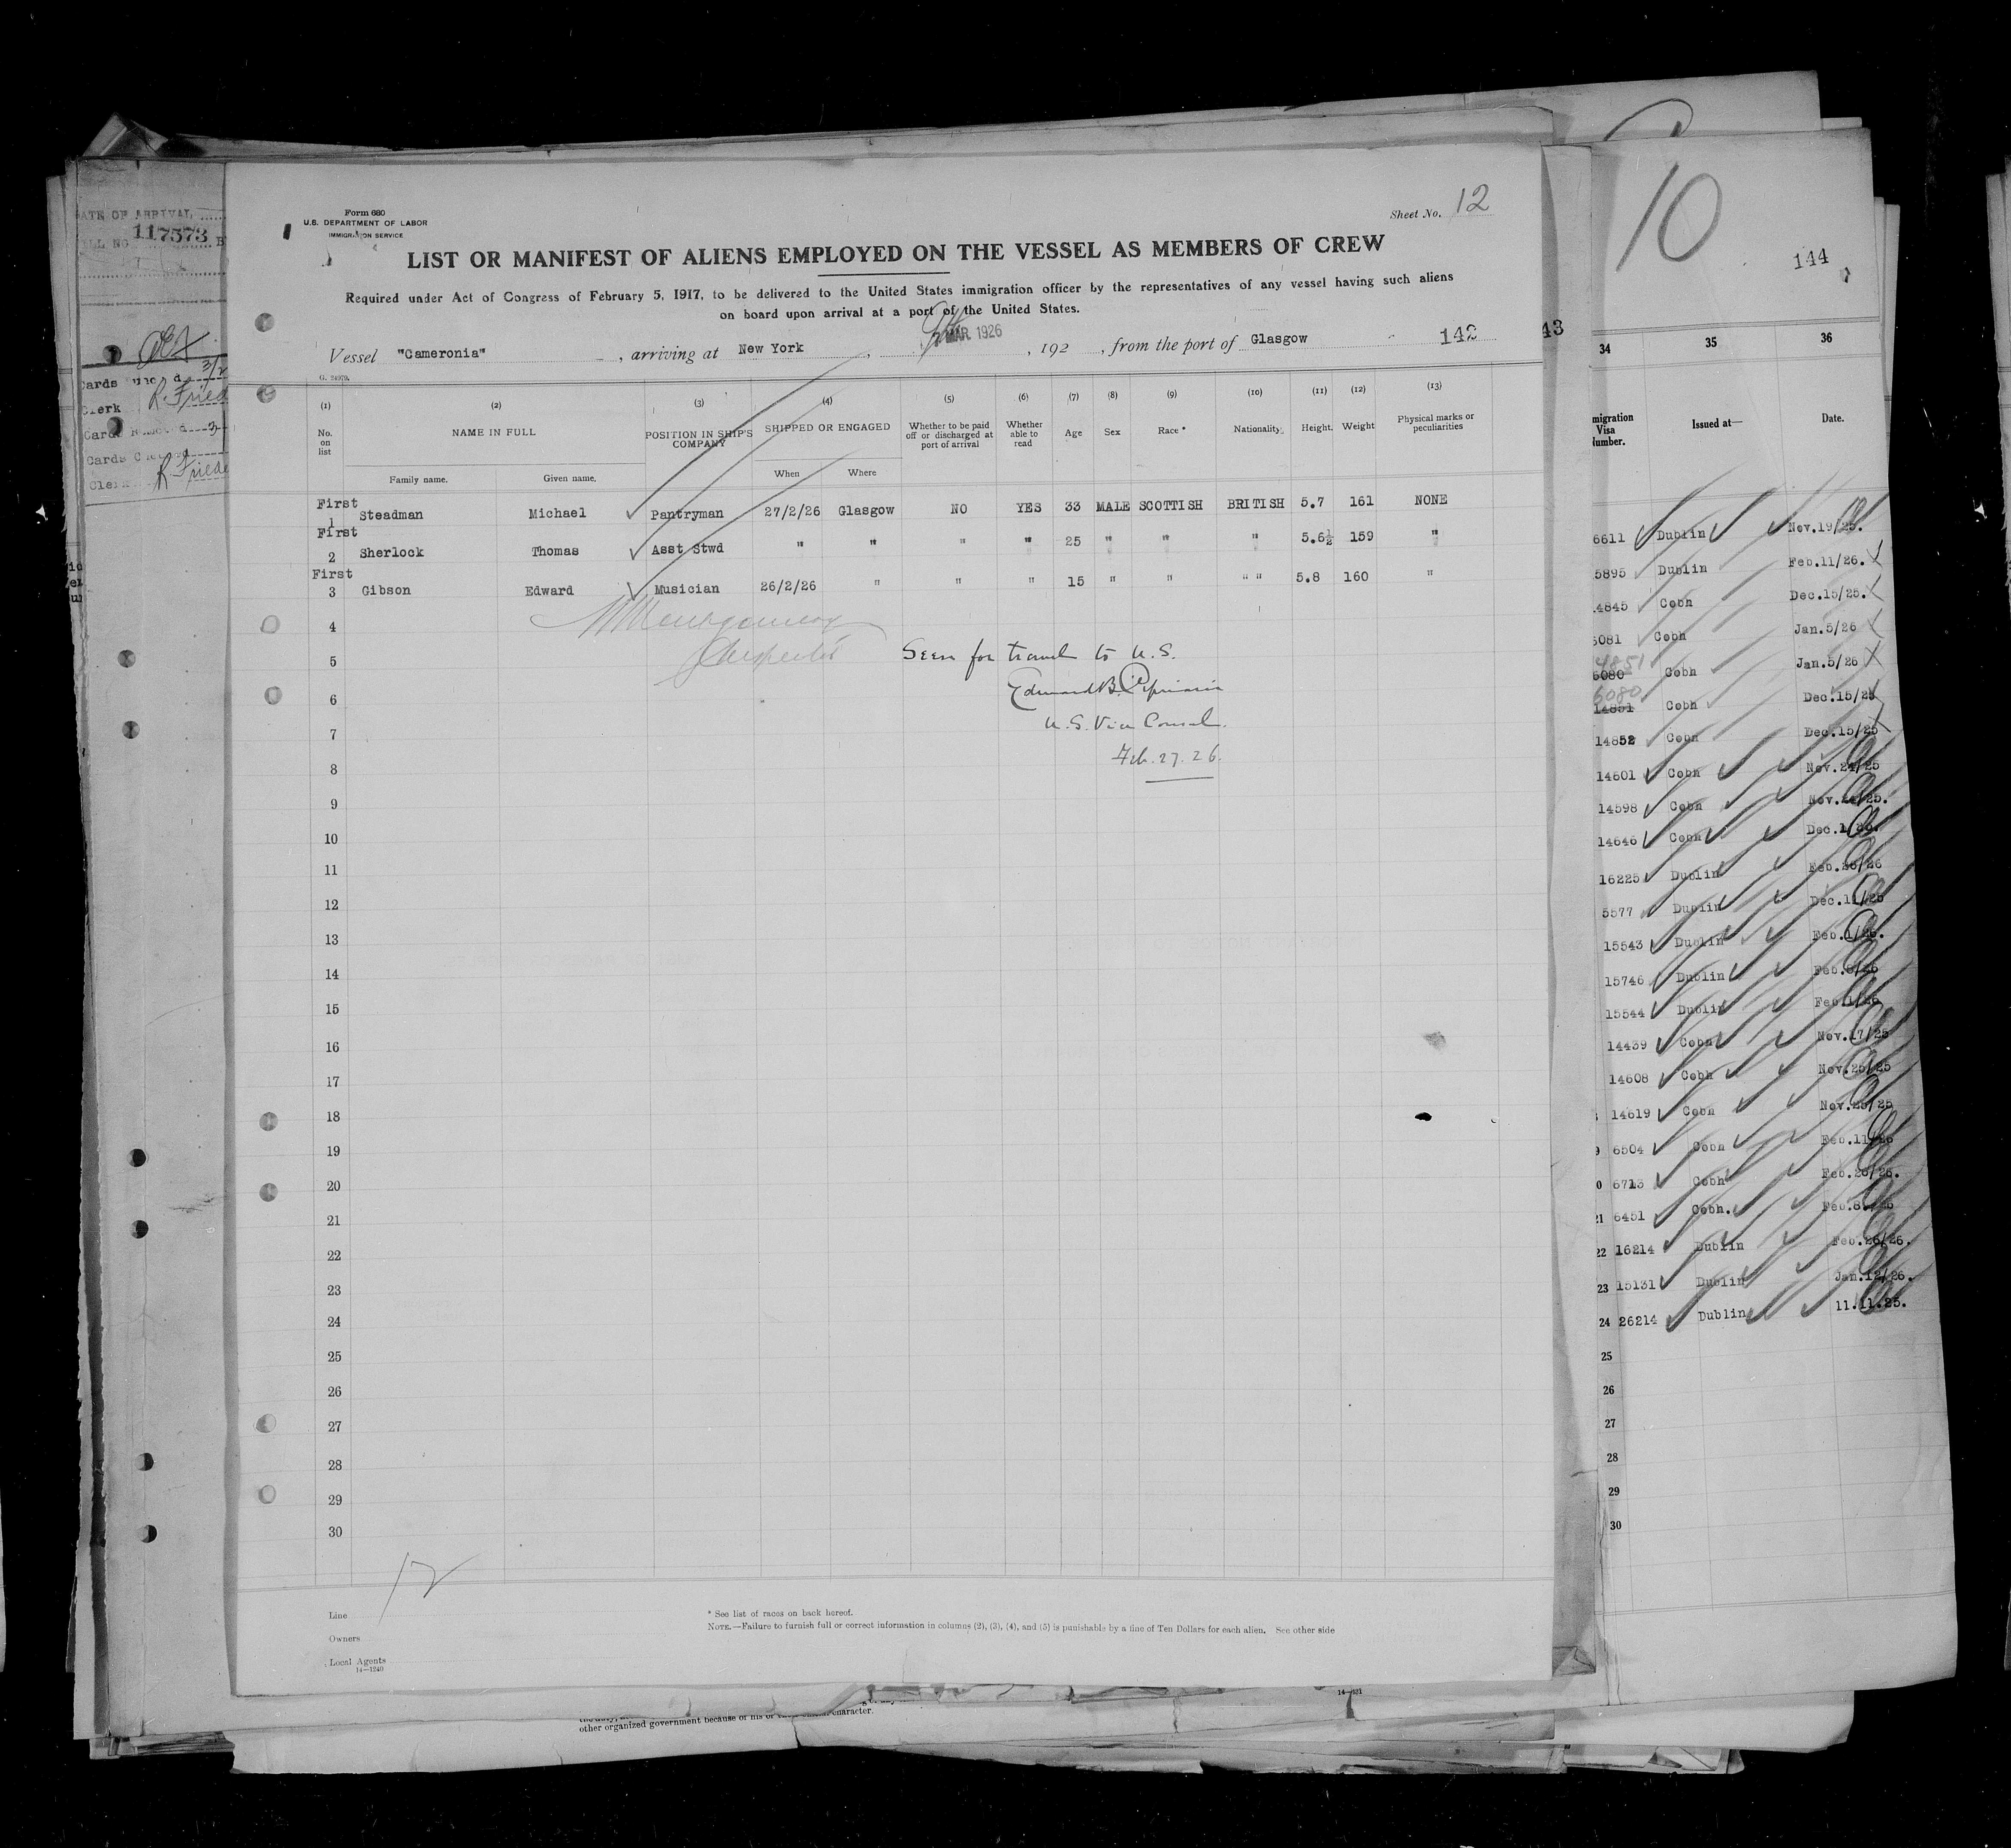 Form 680
U.S. DEPARTMENT OF LABOR
IMMIGRATION SERVICE
Sheet No. 12
LIST OR MANIFEST OF ALIENS EMPLOYED ON THE VESSEL AS MEMBERS OF CREW
Required under Act of Congress of February 5, 1917, to be delivered to the United States immigration officer by the representatives of any vessel having such aliens
on board upon arrival at a port of the United States.
Vessel "Cameronia", arriving at New York, MAR 1926, 192, from the port of Glasgow 142
G. 24979.
(1) (2) (3) (4) (5) (6) (7) (8) (9) (10) (11) (12) (13)
No. on list NAME IN FULL POSITION IN SHIP'S COMPANY SHIPPED OR ENGAGED Whether to be paid off or discharged at port of arrival Whether able to read Age Sex Race * Nationality Height. Weight Physical marks or peculiarities
Family name. Given name. When Where
First
1 Steadman Michael Pantryman 27/2/26 Glasgow NO YES 33 MALE SCOTTISH BRITISH 5.7 161 NONE
First
2 Sherlock Thomas Asst Stwd " " " " 25 " " " 5.6½ 159 "
First
3 Gibson Edward Musician 26/2/26 " " " 15 " " " " 5.8 160 "
4
5 Seen for travel to U.S.
6 Edward B.
7 U.S. Vice Consul.
8 Feb. 27. 26.
9
10
11
12
13
14
15
16
17
18
19
20
21
22
23
24
25
26
27
28
29
30
12
Line
Owners
Local Agents
14—1240
* See list of races on back hereof.
NOTE.—Failure to furnish full or correct information in columns (2), (3), (4), and (5) is punishable by a fine of Ten Dollars for each alien. See other side
other organized government because of his or character.
DATE OF ARRIVAL
117573
Clerk R. Fried
Cards
Clerk R Friede
43
10
144
34 35 36
Immigration Visa Number. Issued at— Date.
6611 Dublin Nov.19/25.
5895 Dublin Feb.11/26.
14845 Cobh Dec.15/25.
6081 Cobh Jan.5/26
4851
6080 Cobh Jan.5/26
6080
14851 Cobh Dec.15/25
14852 Cobh Dec.15/25
14601 Cobh Nov.24/25
14598 Cobh Nov.24/25.
14646 Cobh Dec.1/25.
16225 Dublin Feb.26/26
5577 Dublin Dec.11/25
15543 Dublin Feb.1/26.
15746 Dublin Feb.8/26
15544 Dublin Feb.1/26
14439 Cobh Nov.17/25
14608 Cobh Nov.25/25
14619 Cobh Nov.25/25
6504 Cobh Feb.11/26
6713 Cobh Feb.26/26.
21 6451 Cobh. Feb.8
22 16214 Dublin Feb.26/26.
23 15131 Dublin Jan.12/26.
24 26214 Dublin 11.11.25.
25
26
27
28
29
30